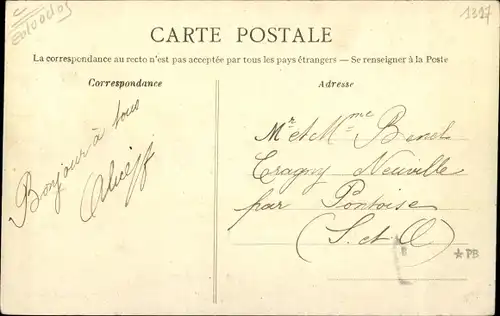 1317
CARTE POSTALE
La correspondance au recto n'est pas acceptée par tous les pays étrangers — Se renseigner à la Poste
Correspondance
Adresse
Bonjour à tous
Mr et Mme
Eragny Neuville
par Pontoise
(S. et O)
*PB